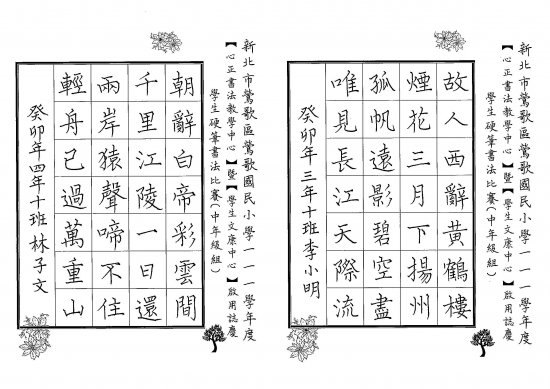 新北市鶯歌區鶯歌國民小學一一一學年度
【心正書法教學中心】暨【學生文康中心】啟用誌慶
學生硬筆書法比賽（中年級組）
故人西辭黃鶴樓
煙花三月下揚州
孤帆遠影碧空盡
唯見長江天際流
癸卯年三年十班李小明
新北市鶯歌區鶯歌國民小學一一一學年度
【心正書法教學中心】暨【學生文康中心】啟用誌慶
學生硬筆書法比賽（中年級組）
朝辭白帝彩雲間
千里江陵一日還
兩岸猿聲啼不住
輕舟已過萬重山
癸卯年四年十班林子文